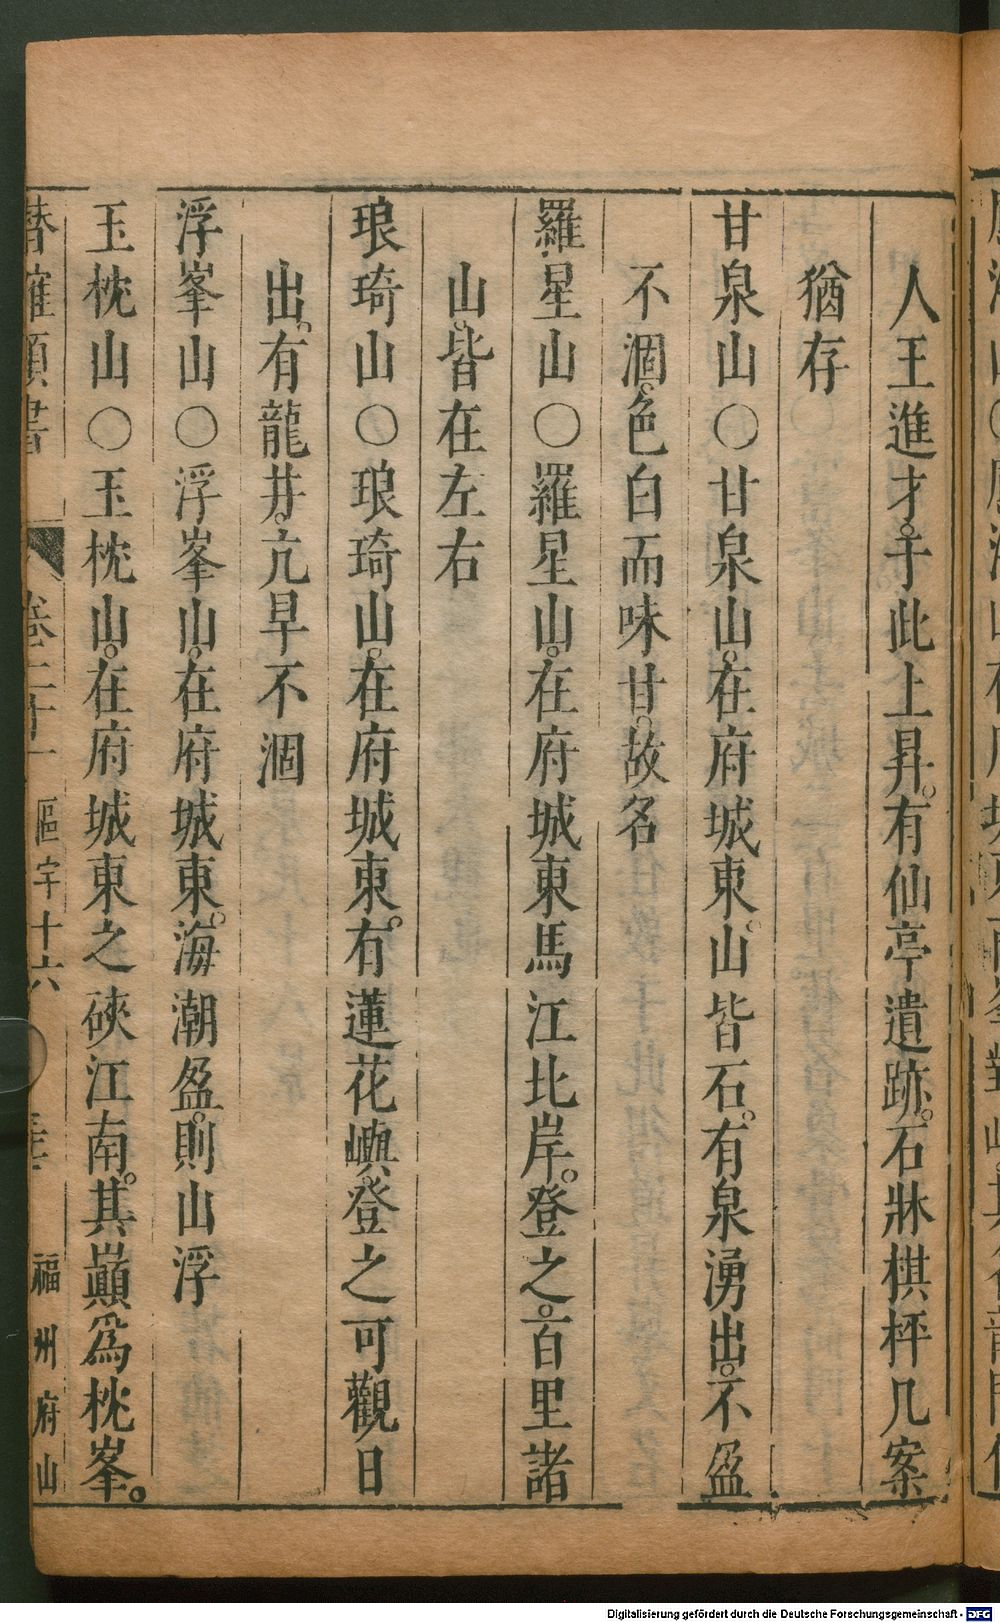 人王進才于此上昇有仙亭遺跡石牀棋枰几案
猶存
甘泉山○甘泉山在府城東山皆石有泉湧出不盈
不涸色白而味甘故名
羅星山○羅星山在府城東馬江北岸登之百里諸
山皆在左右
琅琦山○琅琦山在府城東有蓮花嶼登之可觀日
出有龍井亢旱不涸
浮峯山○浮峯山在府城東海潮盈則山浮
玉枕山○玉枕山在府城東之硤江南其巔爲枕峯
潛確類書 卷二十一 區宇十六 福州府山
Digitalisierung gefördert durch die Deutsche Forschungsgemeinschaft - DFG